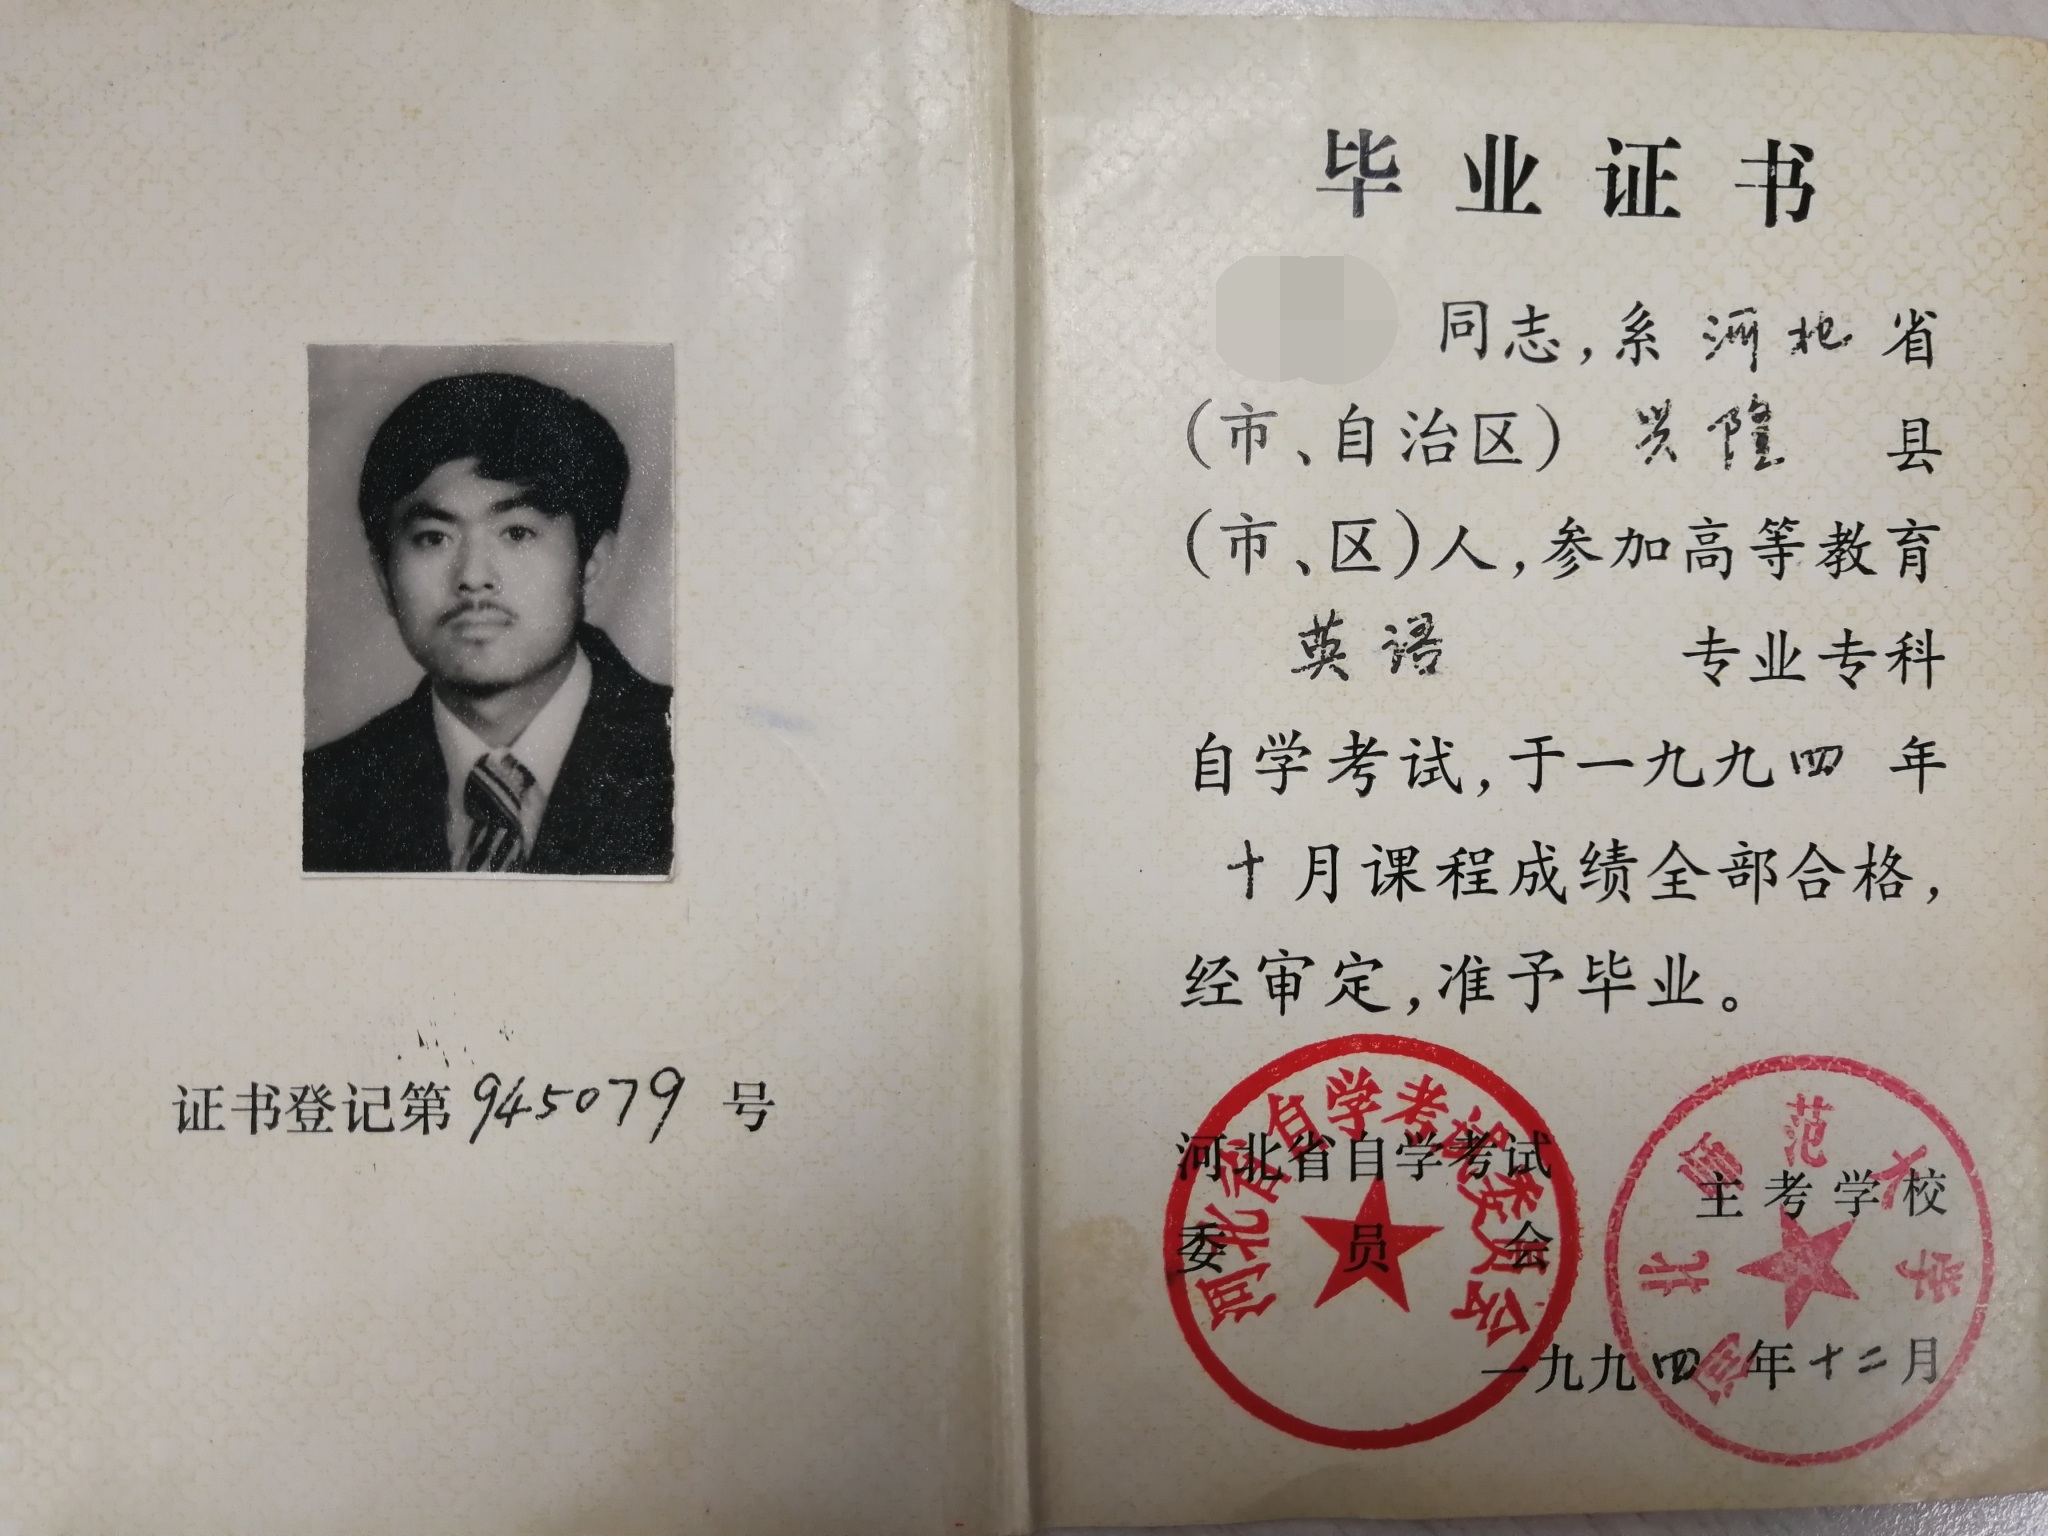 证书登记第945079号
毕业证书
同志,系河北省
(市、自治区)兴隆县
(市、区)人,参加高等教育
英语专业专科
自学考试,于一九九四年
十月课程成绩全部合格,
经审定,准予毕业。
河北省自学考试
委员会
河北省自学考试委员会
主考学校
河北师范大学
一九九四年十二月